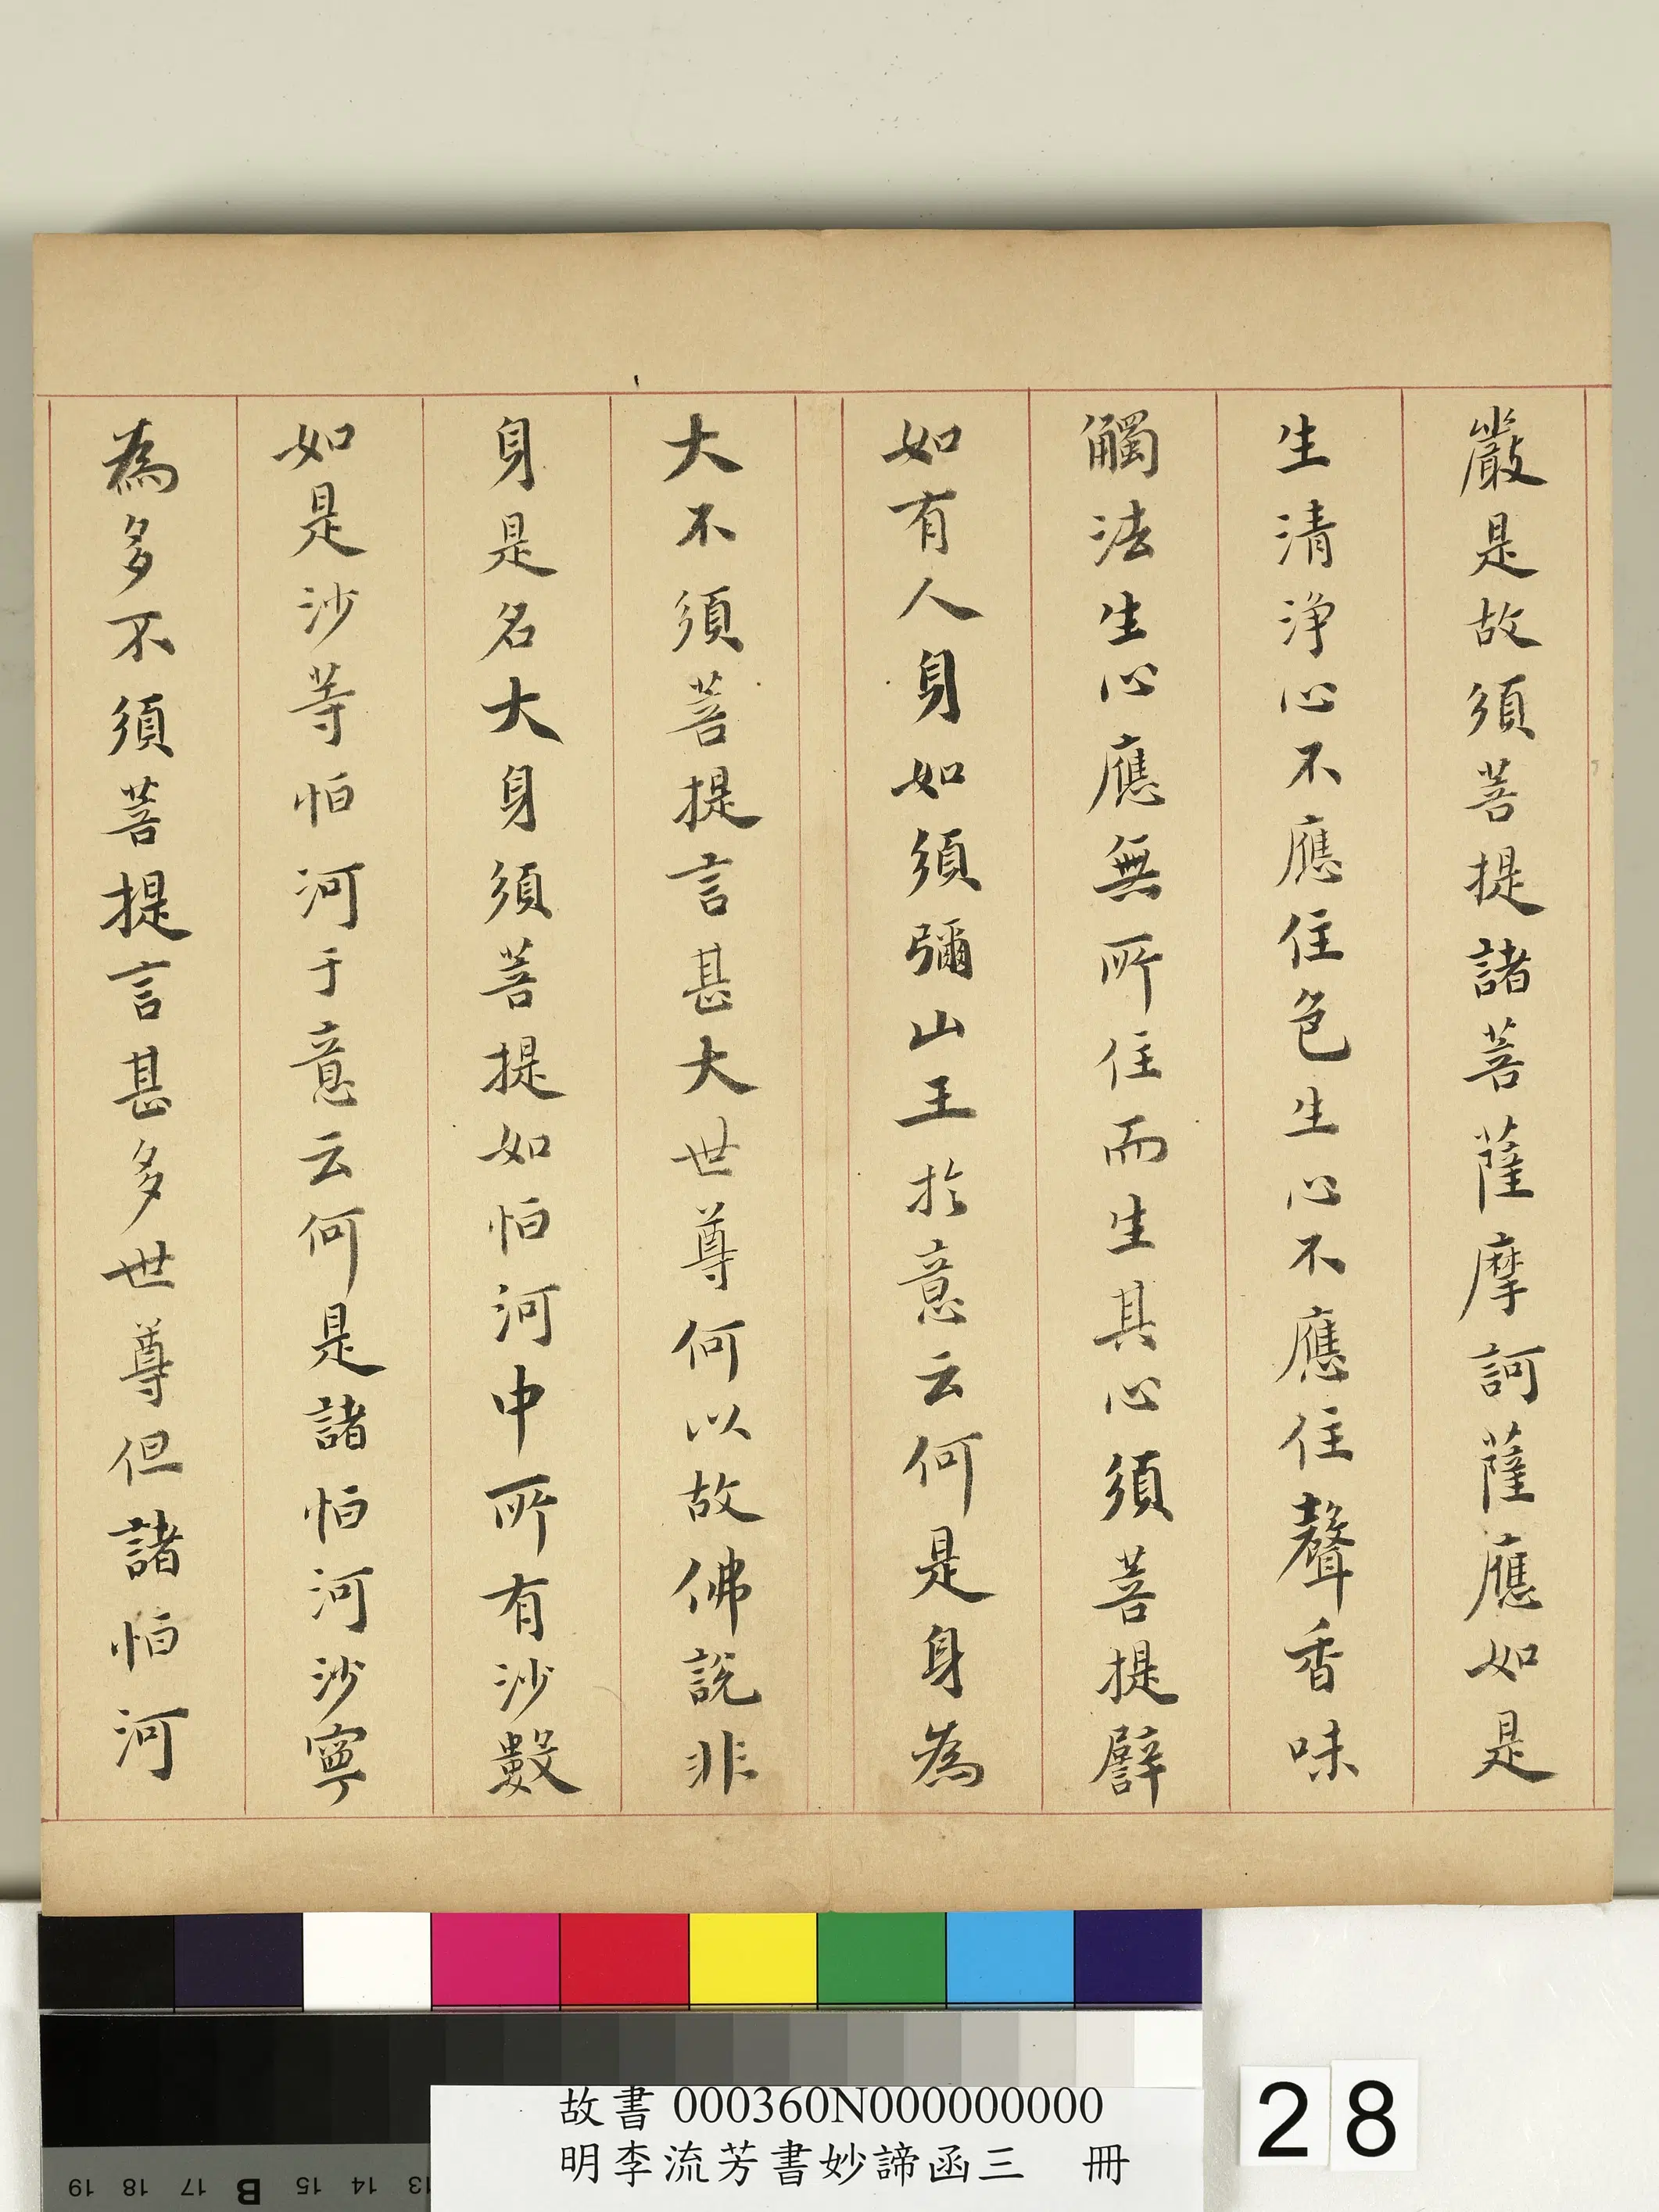 嚴是故須菩提諸菩薩摩訶薩應如是
生清淨心不應住色生心不應住聲香味
觸法生心應無所住而生其心須菩提譬
如有人身如須彌山王於意云何是身為
大不須菩提言甚大世尊何以故佛說非
身是名大身須菩提如恒河中所有沙數
如是沙等恒河于意云何是諸恒河沙寧
為多不須菩提言甚多世尊但諸恒河
故書 000360N000000000
明李流芳書妙諦函三 冊
28
19 18 17 B 15 14 13